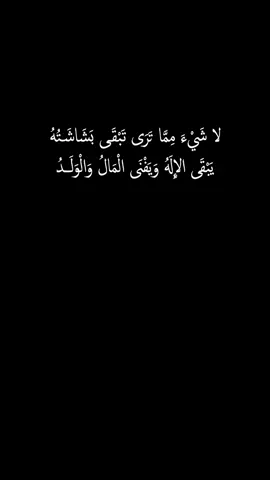 لا شَيْءَ مِمَّا تَرَى تَبْقَى بَشَاشَـتُهُ
يَبْقَى الإِلَهُ وَيَفْنَى الْمَالُ وَالْوَلَــدُ